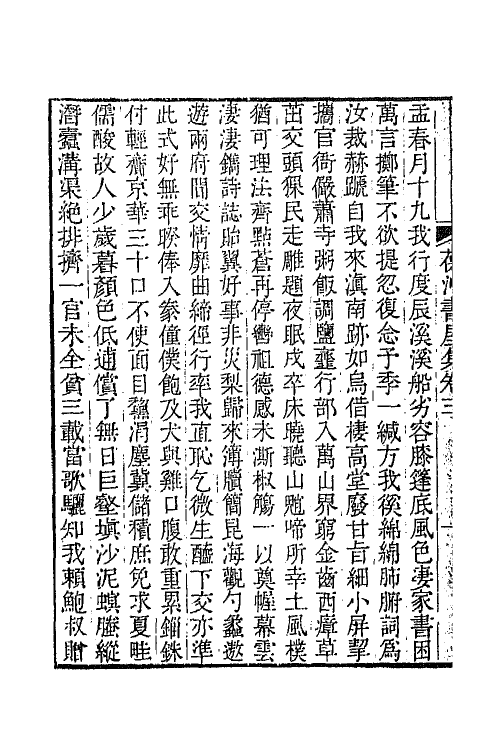 夜 書屋集卷三
孟春月十九我行度辰溪溪船劣容膝篷底風色淒家書困
萬言擲筆不欲提忽復念予季一緘方我徯綿綿肺腑詞爲
汝裁赫蹏自我來滇南跡如烏借棲高堂廢甘旨細小屏挈
攜官衙儼蕭寺粥飯調鹽虀行部入萬山界窮金齒西瘴草
茁交頭猓民走雕題夜眠戍卒床曉聽山魈啼所幸土風樸
猶可理法齊點蒼再停轡祖德感未澌椒觴一以奠幄幕雲
淒淒鐫詩誌貽翼好事非災梨歸來簿牘簡昆海觀勺蠡遨
遊兩府間交情靡曲締徑行率我直恥乞微生醯下交亦準
此式好無乖睽俸入豢僮僕飽及犬與雞口腹敢重累錙銖
付輕齎京華三十口不使面目黧涓塵冀儲積庶免求夏畦
儒酸故人少歲暮顏色低逋償了無日巨壑塡沙泥螟螣縱
潛蠹溝渠絶排擠一官未全貧三載富歌驪知我賴鮑叔貽